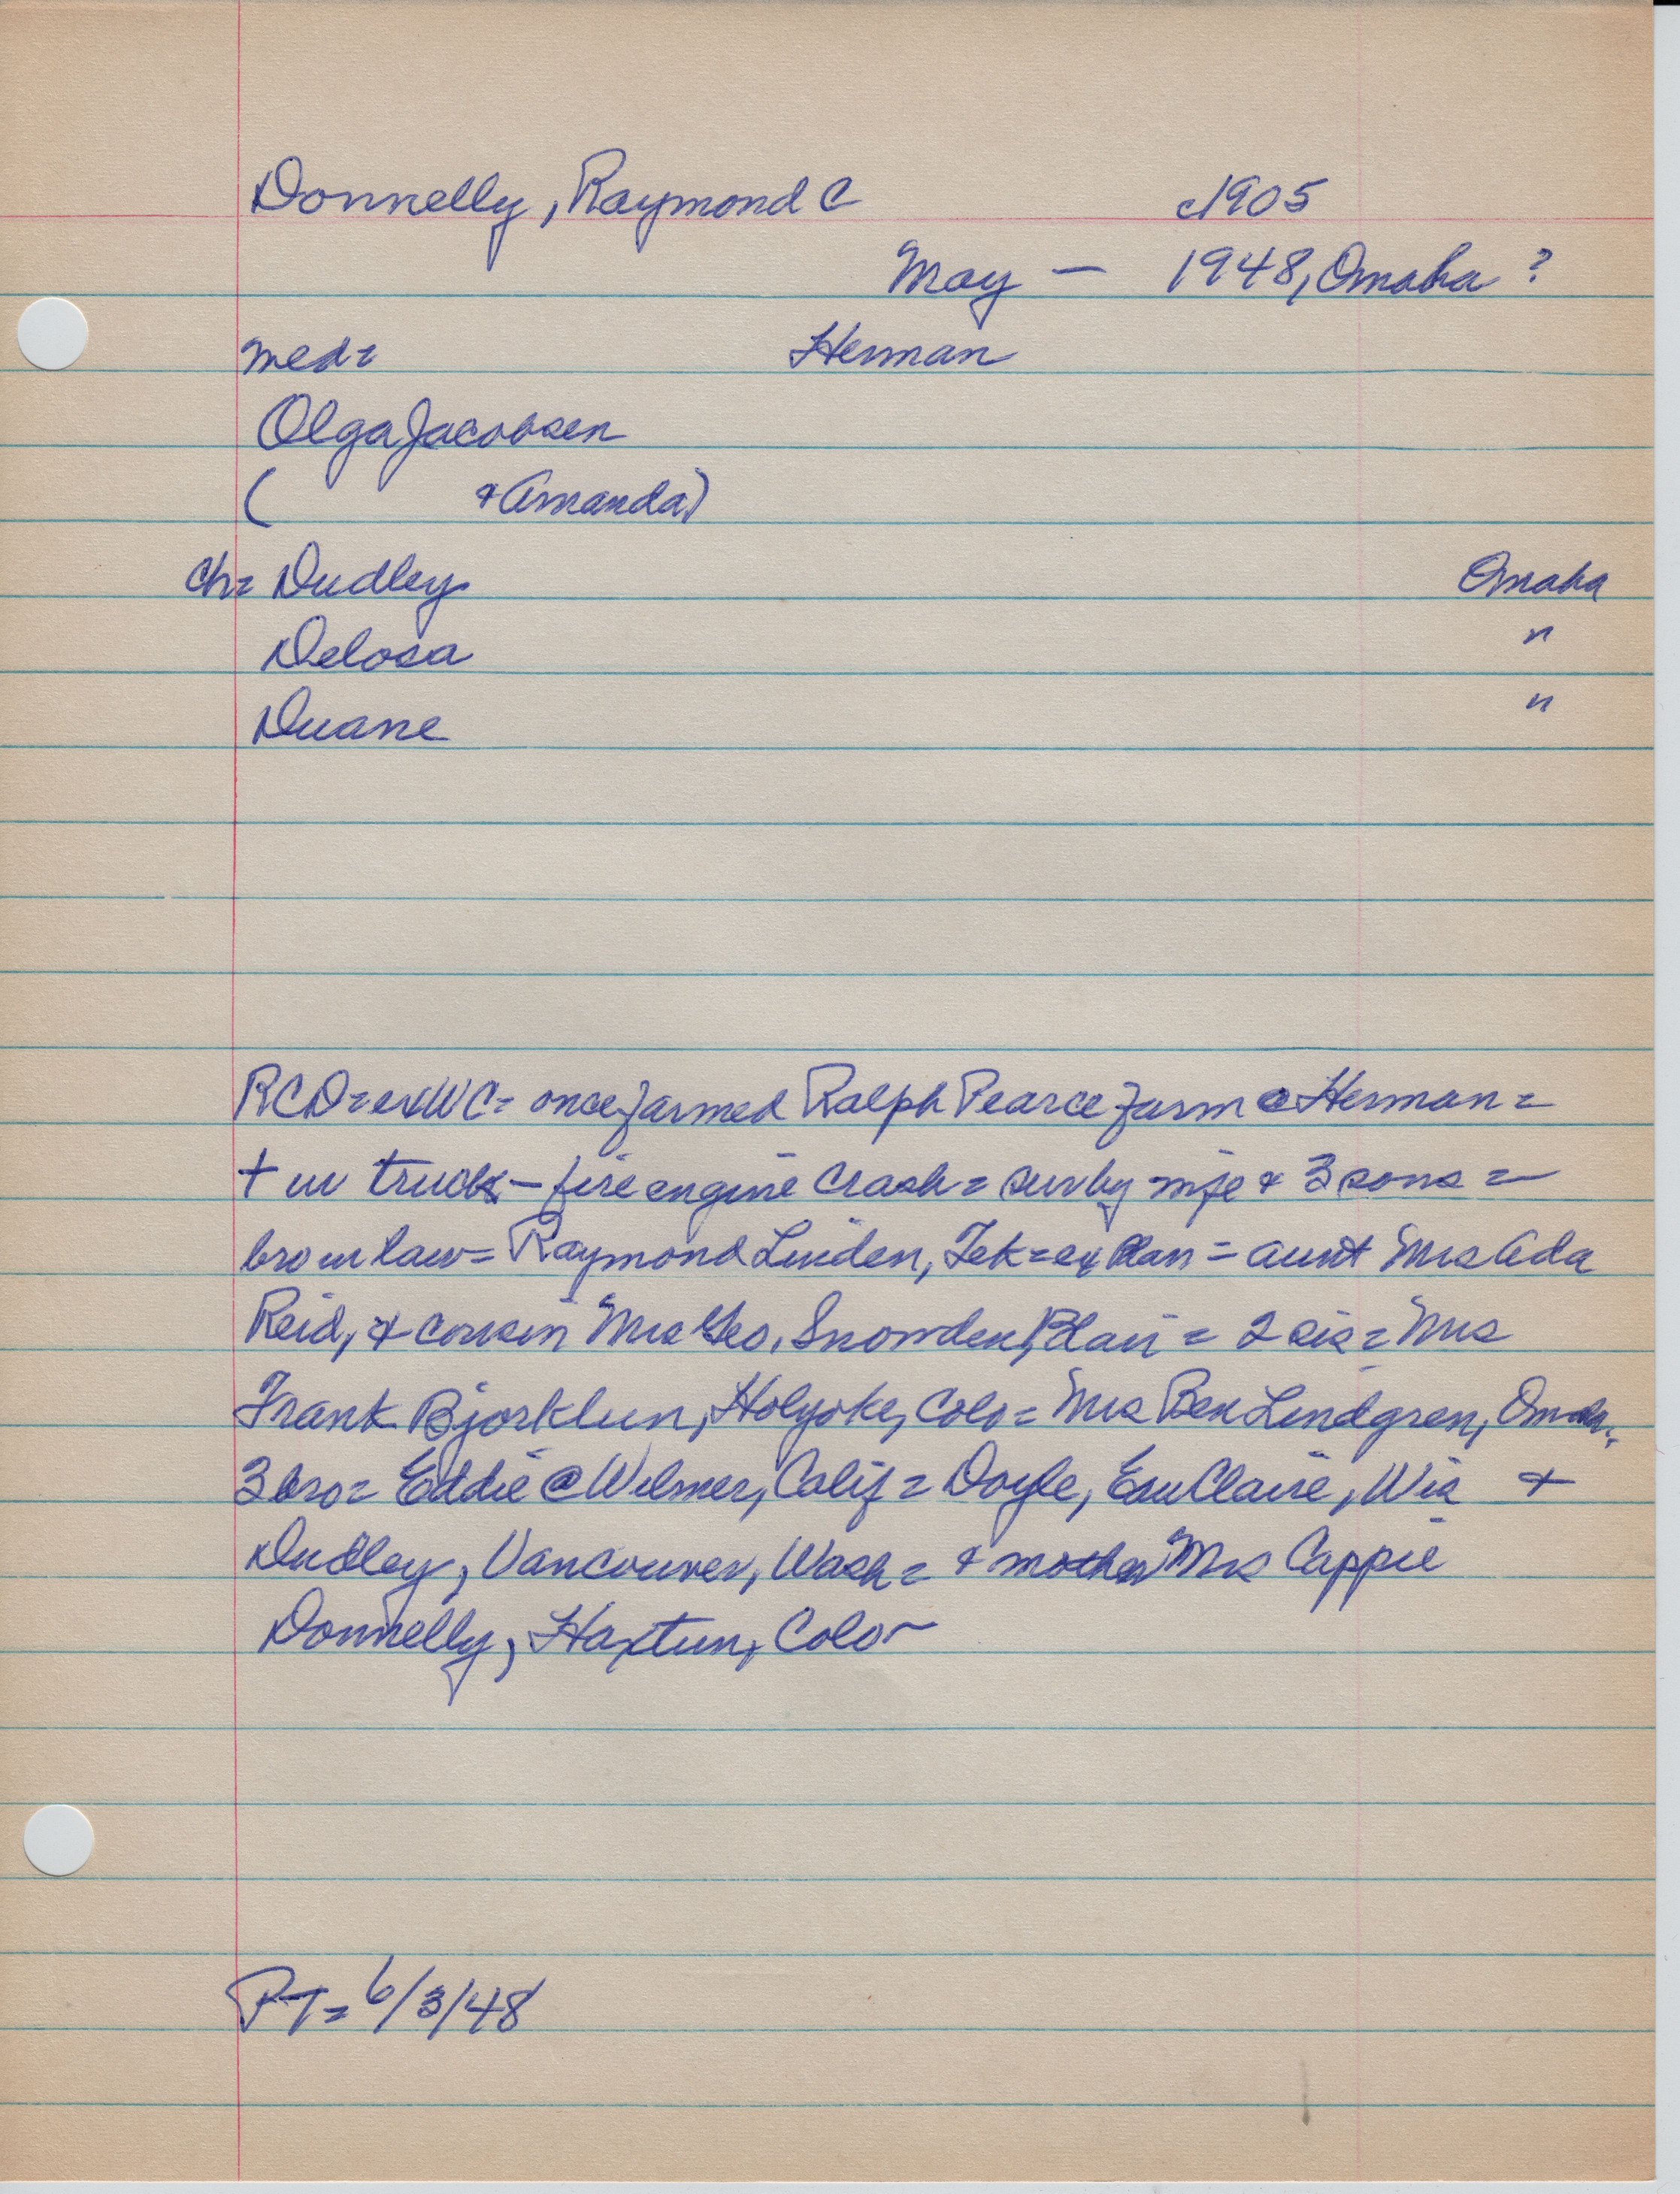 Donnelly, Raymond C c1905
May — 1948, Omaha ?
med= Herman
Olga Jacobsen
( & Amanda)
ch= Dudley Omaha
Delosa "
Duane "
RCD=exWC= once farmed Ralph Pearce farm @ Herman=
+ in truck - fire engine crash = surv by wife & 3 sons =
bro in law= Raymond Linden, Tek= = aunt Mrs Ada
Reid, & cousin Mrs Geo. Snowden, Blair = 2 sis= Mrs
Frank Bjorklun, Holyoke, Colo= Mrs Ben Lindgren, Omaha.
3 bro= Eddie @ Wilmer, Calif = Doyle, Eau Claire, Wis &
Dudley, Vancouver, Wash = & mother Mrs Cappie
Donnelly, Haxtun, Colo-
PT= 6/3/48